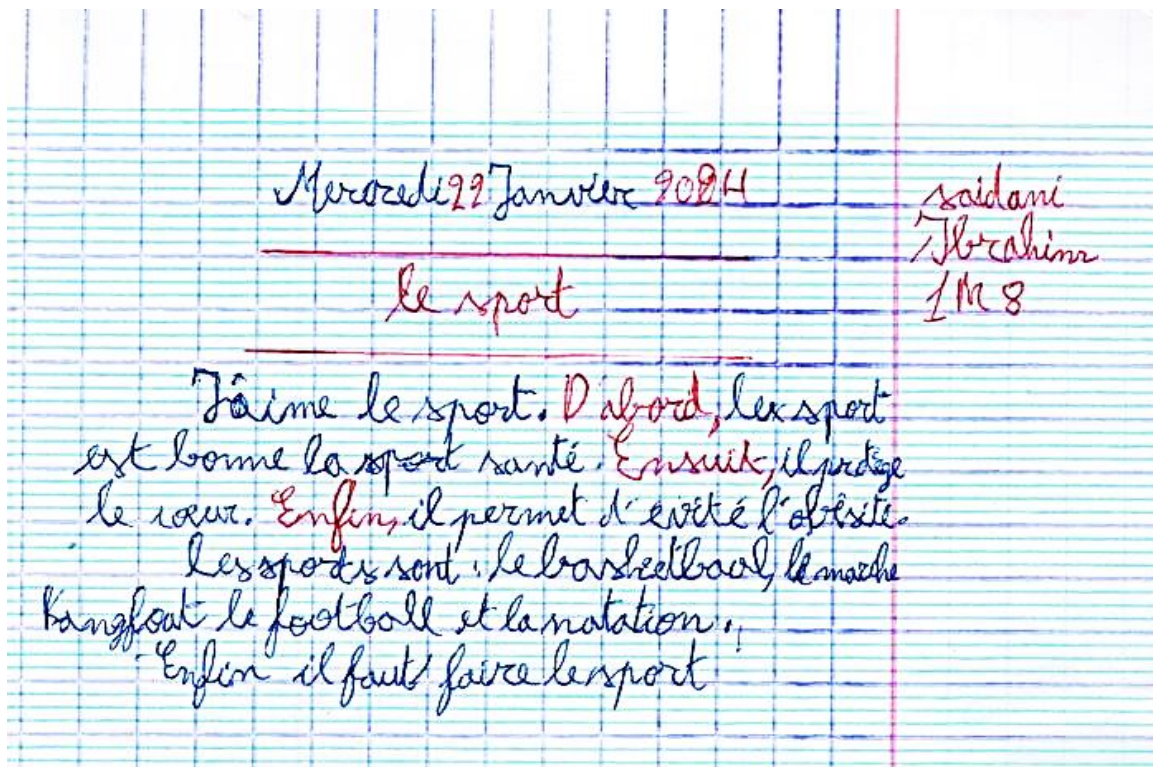 Mercredi 22 Janvier 2024
saidani
Ibrahim
1M8
le sport
J'aime le sport. D'abord, les sport
est bonne la sport santé. Ensuit, il protège
le cœur. Enfin, il permet d'évité l'obésité.
les sports sont : le basketbaal, le marche
Kangfoat le football et la natation.
Enfin il faut faire le sport